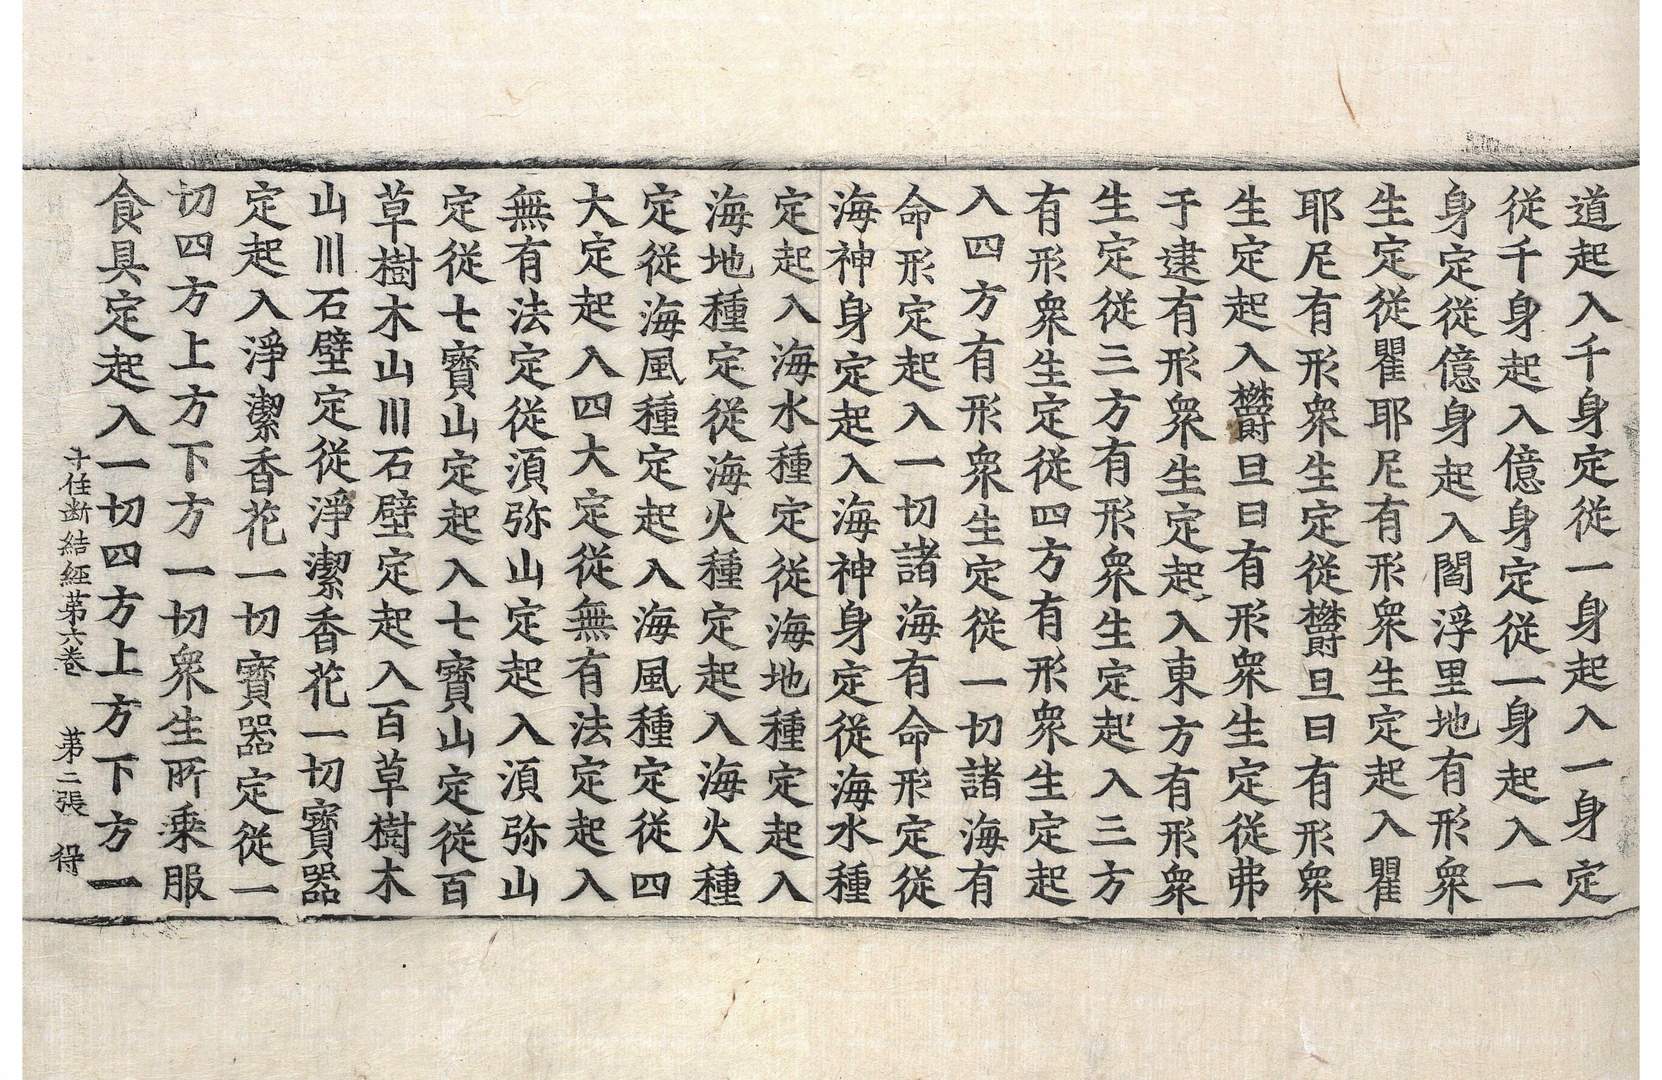 道起入千身定從一身起入一身定
從千身起入億身定從一身起入一
身定從億身起入閻浮里地有形衆
生定從瞿耶尼有形衆生定起入瞿
耶尼有形衆生定從欝旦曰有形衆
生定起入欝旦曰有形衆生定從弗
于逮有形衆生定起入東方有形衆
生定從三方有形衆生定起入三方
有形衆生定從四方有形衆生定起
入四方有形衆生定從一切諸海有
命形定起入一切諸海有命形定從
海神身定起入海神身定從海水種
定起入海水種定從海地種定起入
海地種定從海火種定起入海火種
定從海風種定起入海風種定從四
大定起入四大定從無有法定起入
無有法定從湏弥山定起入湏弥山
定從七寶山定起入七寶山定從百
草樹木山川石壁定起入百草樹木
山川石壁定從淨潔香花一切寶器
定起入淨潔香花一切寶器定從一
切四方上方下方一切衆生所乘服
食具定起入一切四方上方下方一
十住断結經第六卷 第二張 得